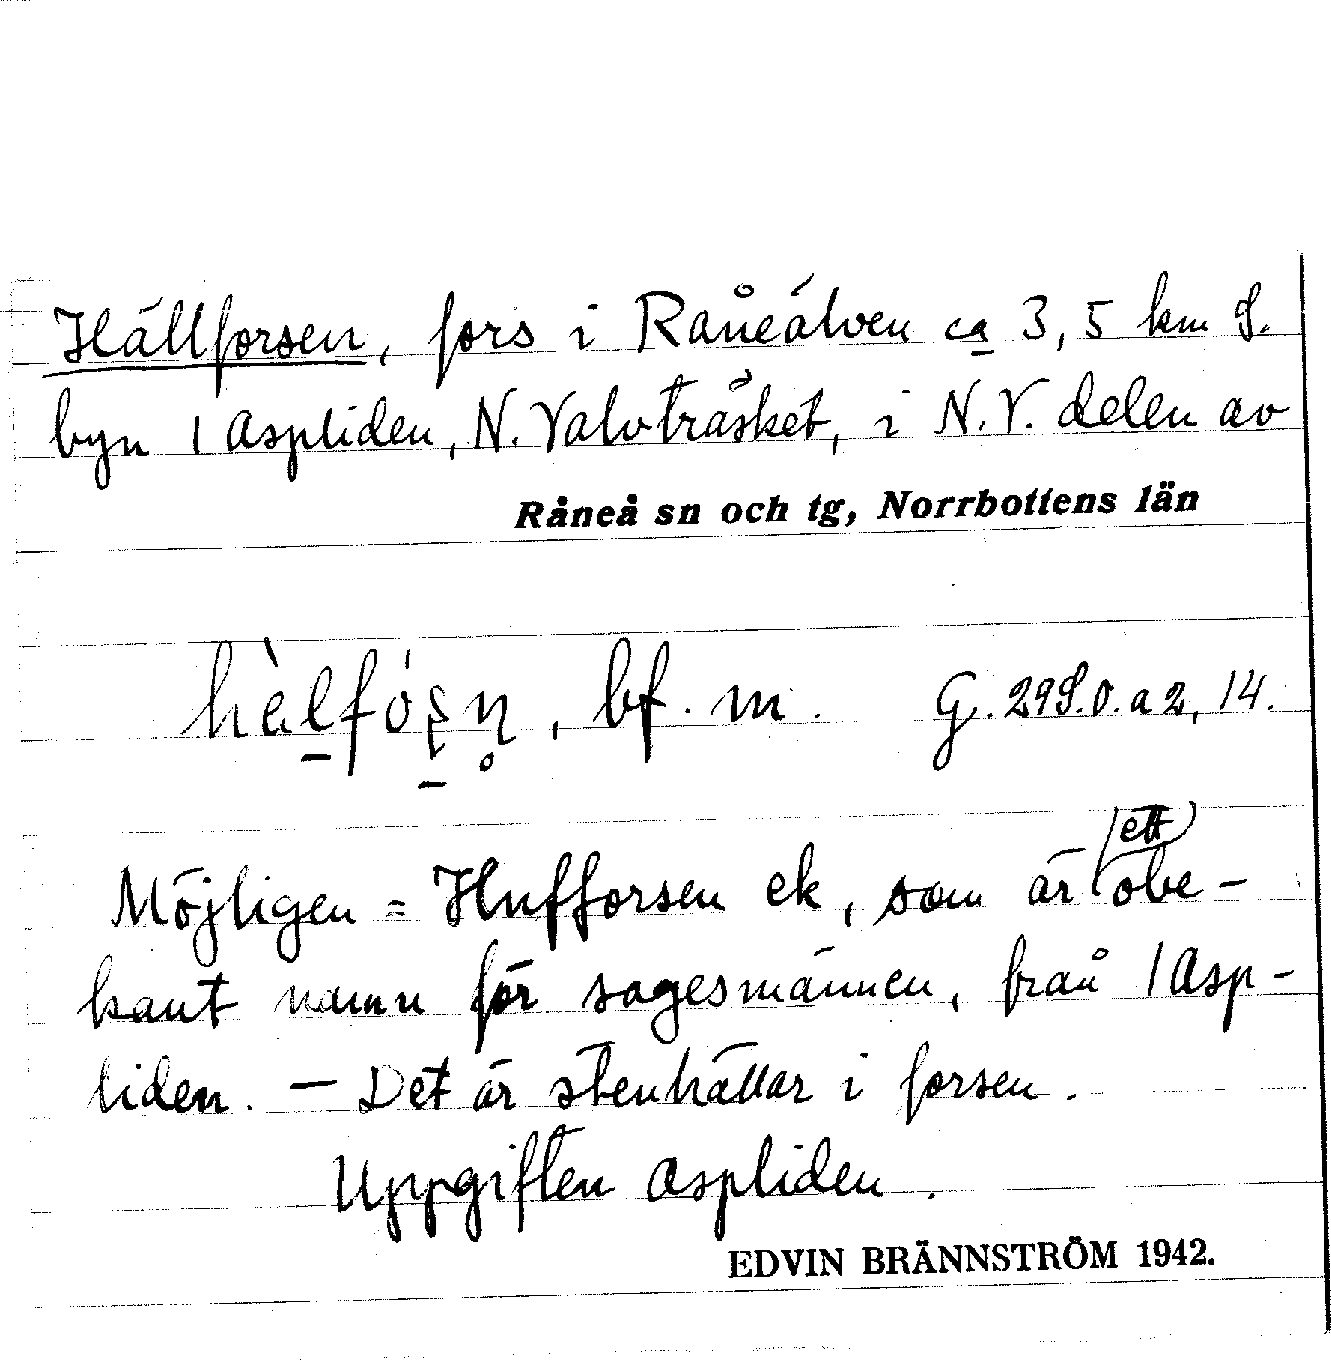 Hällforsen, fors i Råneälven ca 3,5 km S.
byn 1 Aspliden, N. Valvträsket, i N.V. delen av
Råneå sn och tg, Norrbottens län
hèlfórsn, bf. m. G. 29S.O. a 2, 14.
ett
Möjligen = Hufforsen ek, som är obe-
kant namn för sagesmännen, från 1 Asp-
liden. — Det är stenhällar i forsen.
Uppgiften Aspliden.
EDVIN BRÄNNSTRÖM 1942.